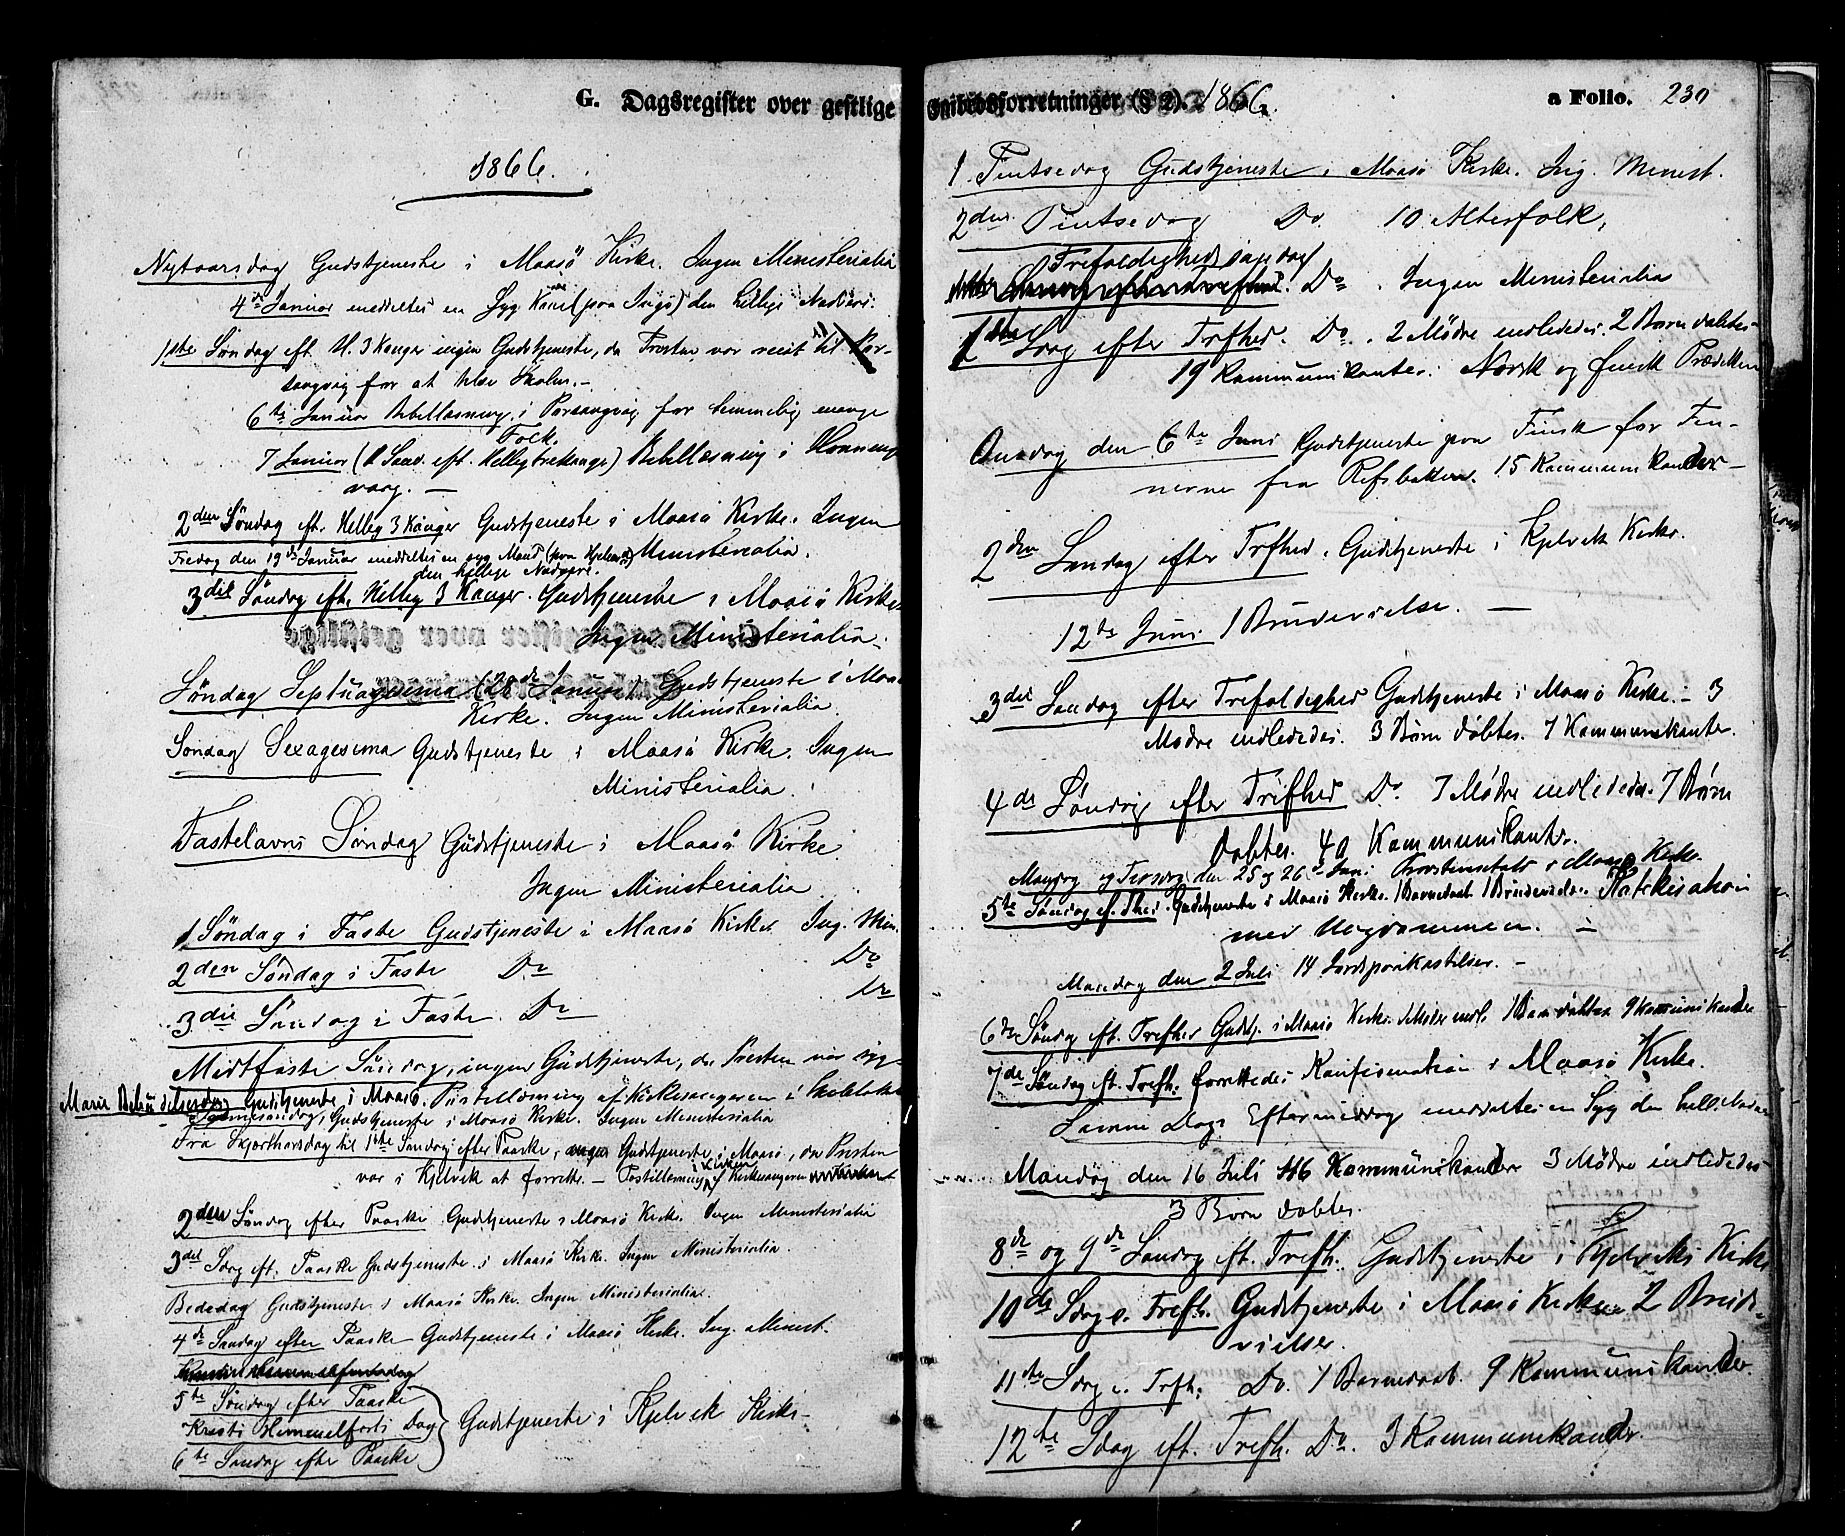 G. Dagsregister over gestlige
1866.
Nytaarsdag Gudstjeneste i Maasö Kirke. Ingen Ministerialia
4de Januar meddeltes en Syg Kone (paa Ingö) den hellige Nadvere.
1ste Söndag eft. H. 3 Konger ingen Gudstjeneste, da Presten var reist til Por-
sangvig for at hølde Skolen.-
6te Januar Bibellæsning i Porsangvig for temmelig mange
Folk.
7 Januar (1 Sønd. eft. Helligtrekonger) Bibellæsning i Honning-
vaag. —
2den Söndag eft. Hellig 3 Konger Gudstjeneste i Maasö Kirke. Ingen
Fredag den 19de Januar meddeltes en syg Mand (paa Hjelmsö) Ministerialia.
den hellige Nadvere.
3die Söndag eft. Hellig 3 Konger. Gudstjeneste i Maasö Kirke
Ingen Ministerialia.
Söndag Septuagesima (28de Januar) Gudstjeneste i Maasö
Kirke. Ingen Ministerialia.
Søndag Sexagesima Gudstjeneste i Maasö Kirke. Ingen
Ministerialia.
Fastelavns Söndag Gudstjeneste i Maasö Kirke.
Ingen Ministerialia
1 Søndag i Faste Gudstjeneste i Maasö Kirke. Ing. Min.
2den Søndag i Faste Do Do
3die Søndag i Faste. Do Do
Midtfaste Søndag, ingen Gudstjeneste, da Presten var syg-
Marie Bebudelsesdag Gudstjeneste i Maasö. Postillæsning af Kirkesangeren i Skolelokalet
Palmesøndag, Gudstjeneste i Maasö Kirke. Ingen Ministerialia
Fra Skjærthorsdag til 1ste Søndag efter Paaske, ingen Gudstjeneste i Maasö, da Presten
var i Kjelvik at forrette. — Postillæsning i Kirken af Kirkesangeren
2den Søndag efter Paaske Gudstjeneste i Maasö Kirke. Ingen Ministerialia
3die Sdag eft. Paaske Gudstjeneste i Maasö Kirke. Ingen Ministerialia.
Bededag Gudstjeneste i Maasö Kirke. Ingen Ministerialia.
4de Søndag efter Paaske Gudstjeneste i Maasö Kirke. Ing. Minist.
Kristi Himmelfartsdag
5te Søndag efter Paaske
Kristi Himmelfarts Dag Gudstjeneste i Kjelvik Kirke-
6te Søndag efter Paaske
Embedsforretninger (§ 2). 1866. a Folio. 230
1. Pintsedag Gudstjeneste i Maasö Kirke. Ing. Minist.
2den Pintsedag Do. 10 Altersfolk,
Trefoldigheds søndag
Do. Ingen Ministerialia
1ste Sdag efter Trefhed. Do. 2 Mødre indlededes. 2 Børn døbtes-
19 Kommunikanter. Norsk og finsk Prædiken
Onsdag den 6te Juni Gudstjeneste paa Finsk for Fin-
nerne fra Refsbotten. 15 Kommunikanter—
2den Søndag efter Trfhed. Gudstjeneste i Kjelvik Kirke.
12te Juni 1 Brudevielse. —
3die Søndag efter Trefoldighed Gudstjeneste i Maasö Kirke.- 3
Mødre indlededes. 3 Børn døbtes. 7 Kommunikanter.
4de Søndag efter Trifhed Do. 7 Mødre indlededes. 7 Børn
døbtes. 40 Kommunikantr.
Mandag og Tirsdag den 25 og 26de Juni Provstevisitats i Maasö Kirke.
5te Søndag ef. Thed. Gudstjeneste i Maasö Kirke. 1 Barnedaab 1 Brudevielse. Katekisation
med Ungdommen. —
Mandag den 2 Juli 14 Jordpaakastelser. -
6te Søndg eft. Trefhed Gudstj. i Maasö Kirke. 1 Moder indl. 1 Barn døbtes 9 Kommunikander
7de Søndag eft. Trefh. forrettedes Konfirmation i Maasö Kirke.
Samme Dags Eftermiddag meddeltes en Syg den hell. Nadvere
Mandag den 16 Juli 116 Kommunikander 3 Mødre indlededes-
3 Børn døbtes.
8de og 9de Søndag eft. Trefh. Gudstjeneste i Kjelviks Kirke
10de Sdag e. Trefh. Gudstjeneste i Maasö Kirke 2 Brude-
vielser.
11te Sdag e. Trfh. Do. 1 Barnedaab. 9 Kommunikander.
12te Sdag eft. Trefh. Do. 3 Kommunikander.